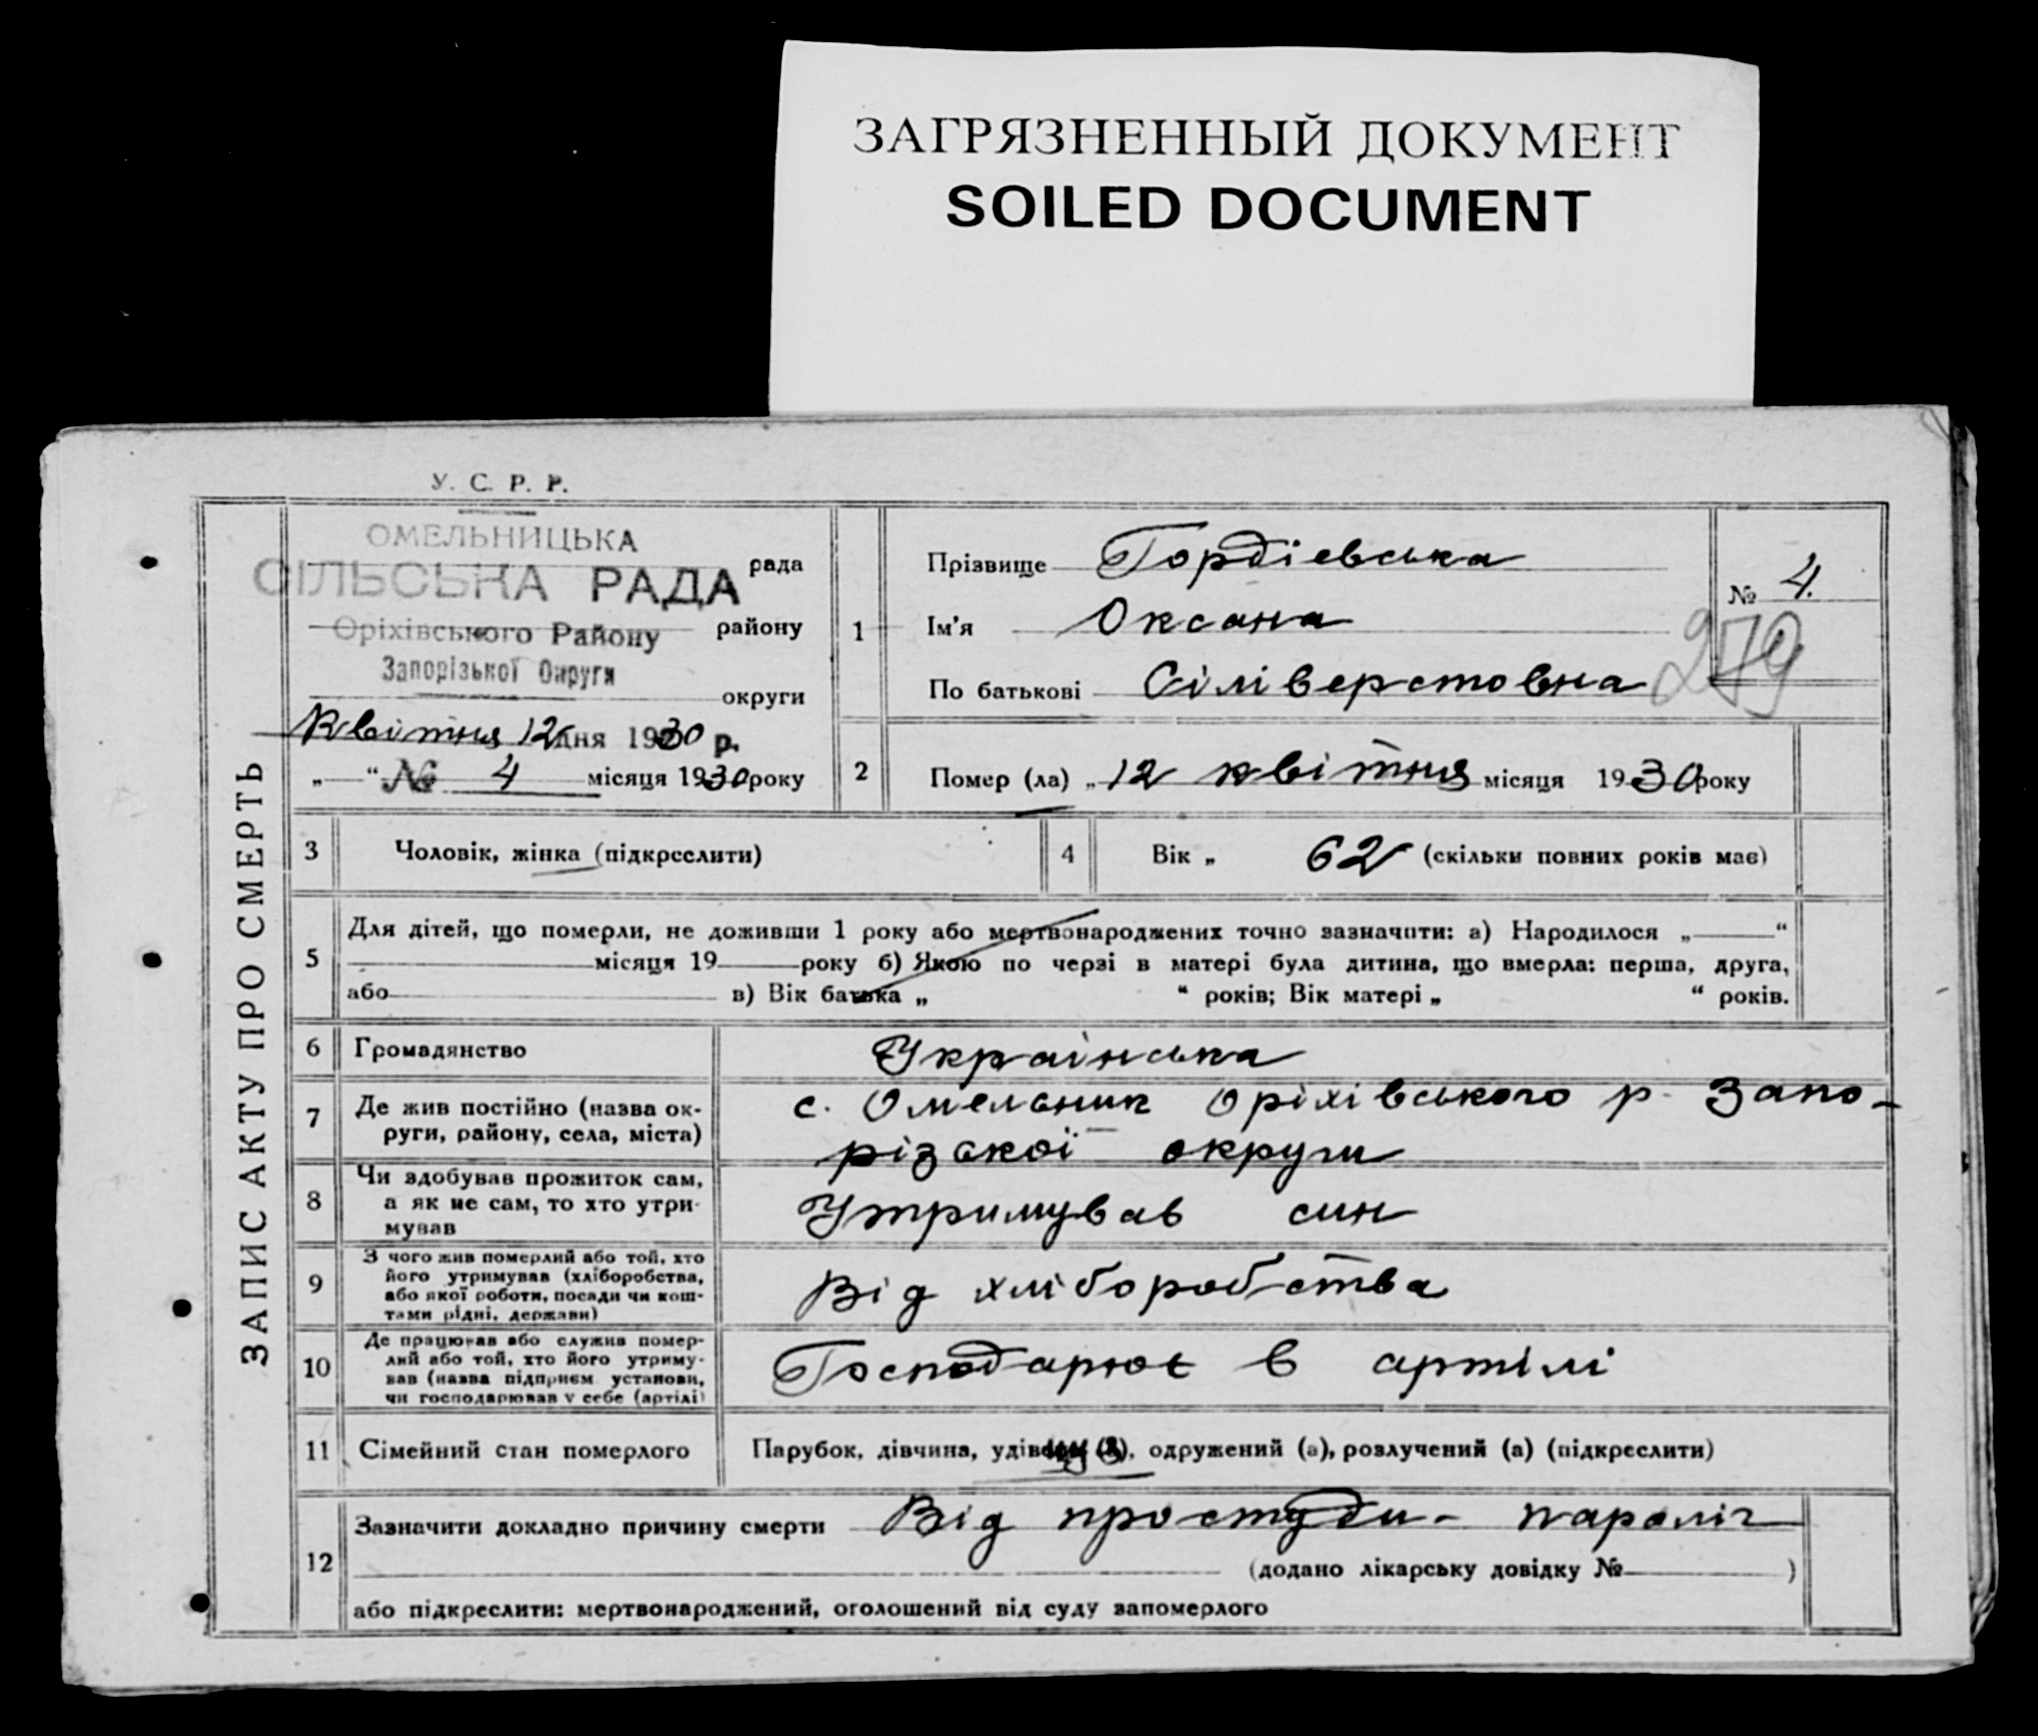 ЗАГРЯЗНЕННЫЙ ДОКУМЕНТ
SOILED DOCUMENT
У. С. Р. Р.
ЗАПИС АКТУ ПРО СМЕРТЬ
ОМЕЛЬНИЦЬКА
рада
СІЛЬСЬКА РАДА
Оріхівського Району району
Запорізької Округи
округи
Квітня 12 дня 1930 р.
„ “ № 4 місяця 1930 року
1
Прізвище Гордієвська
Ім'я Оксана
По батькові Сіліверстовна
№ 4.
279
2 Помер (ла) „ 12 квітня місяця 1930 року
3 Чоловік, жінка (підкреслити)
4 Вік „ 62 (скільки повних років має)
5 Для дітей, що померли, не доживши 1 року або мертвонароджених точно зазначити: а) Народилося „ “
місяця 19 року б) Якою по черзі в матері була дитина, що вмерла: перша, друга,
або в) Вік батька „ “ років; Вік матері „ “ років.
6 Громадянство Українська
7 Де жив постійно (назва ок-
руги, району, села, міста)
с. Омельник Оріхівського р. Запо-
різької округи
8 Чи здобував прожиток сам,
а як не сам, то хто утри-
мував
Утримував син
9 З чого жив померлий або той, хто
його утримував (хліборобства,
або якої роботи, посади чи кош-
тами рідні, держави)
Від хліборобства
10 Де працював або служив помер-
лий або той, хто його утриму-
вав (назва підприєм. установи,
чи господарював у себе (артілі)
Господарює в артілі
11 Сімейний стан померлого Парубок, дівчина, одружений (а), розлучений (а) (підкреслити)
12 Зазначити докладно причину смерти Від простуди - параліч
(додано лікарську довідку № )
або підкреслити: мертвонароджений, оголошений від суду запомерлого